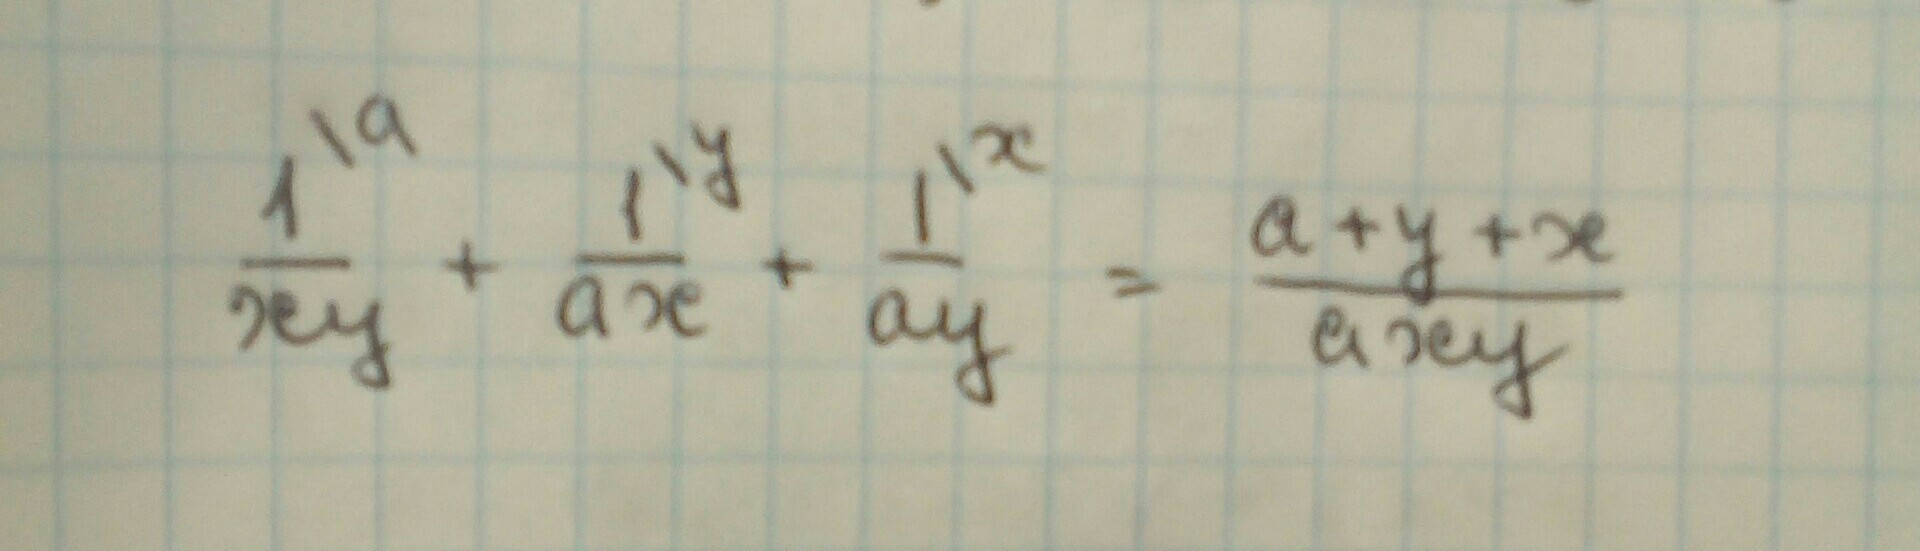 \frac{1^{\backslash a}}{xy} + \frac{1^{\backslash y}}{ax} + \frac{1^{\backslash x}}{ay} = \frac{a+y+x}{axy}